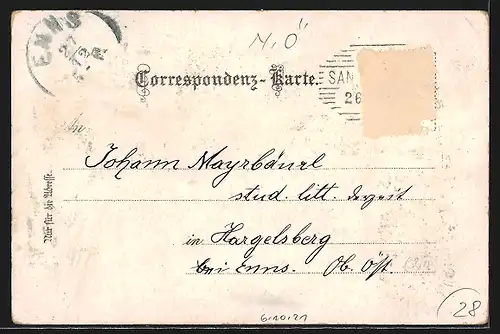 ENNS
27
12
N.Ö
Correspondenz-Karte.
SAN
26
An
Johann Mayrbäurl
stud. litt. derzeit
in Hargelsberg
bei Enns. Ob. Öst.
Nur für die Adresse.
6.10.21
28